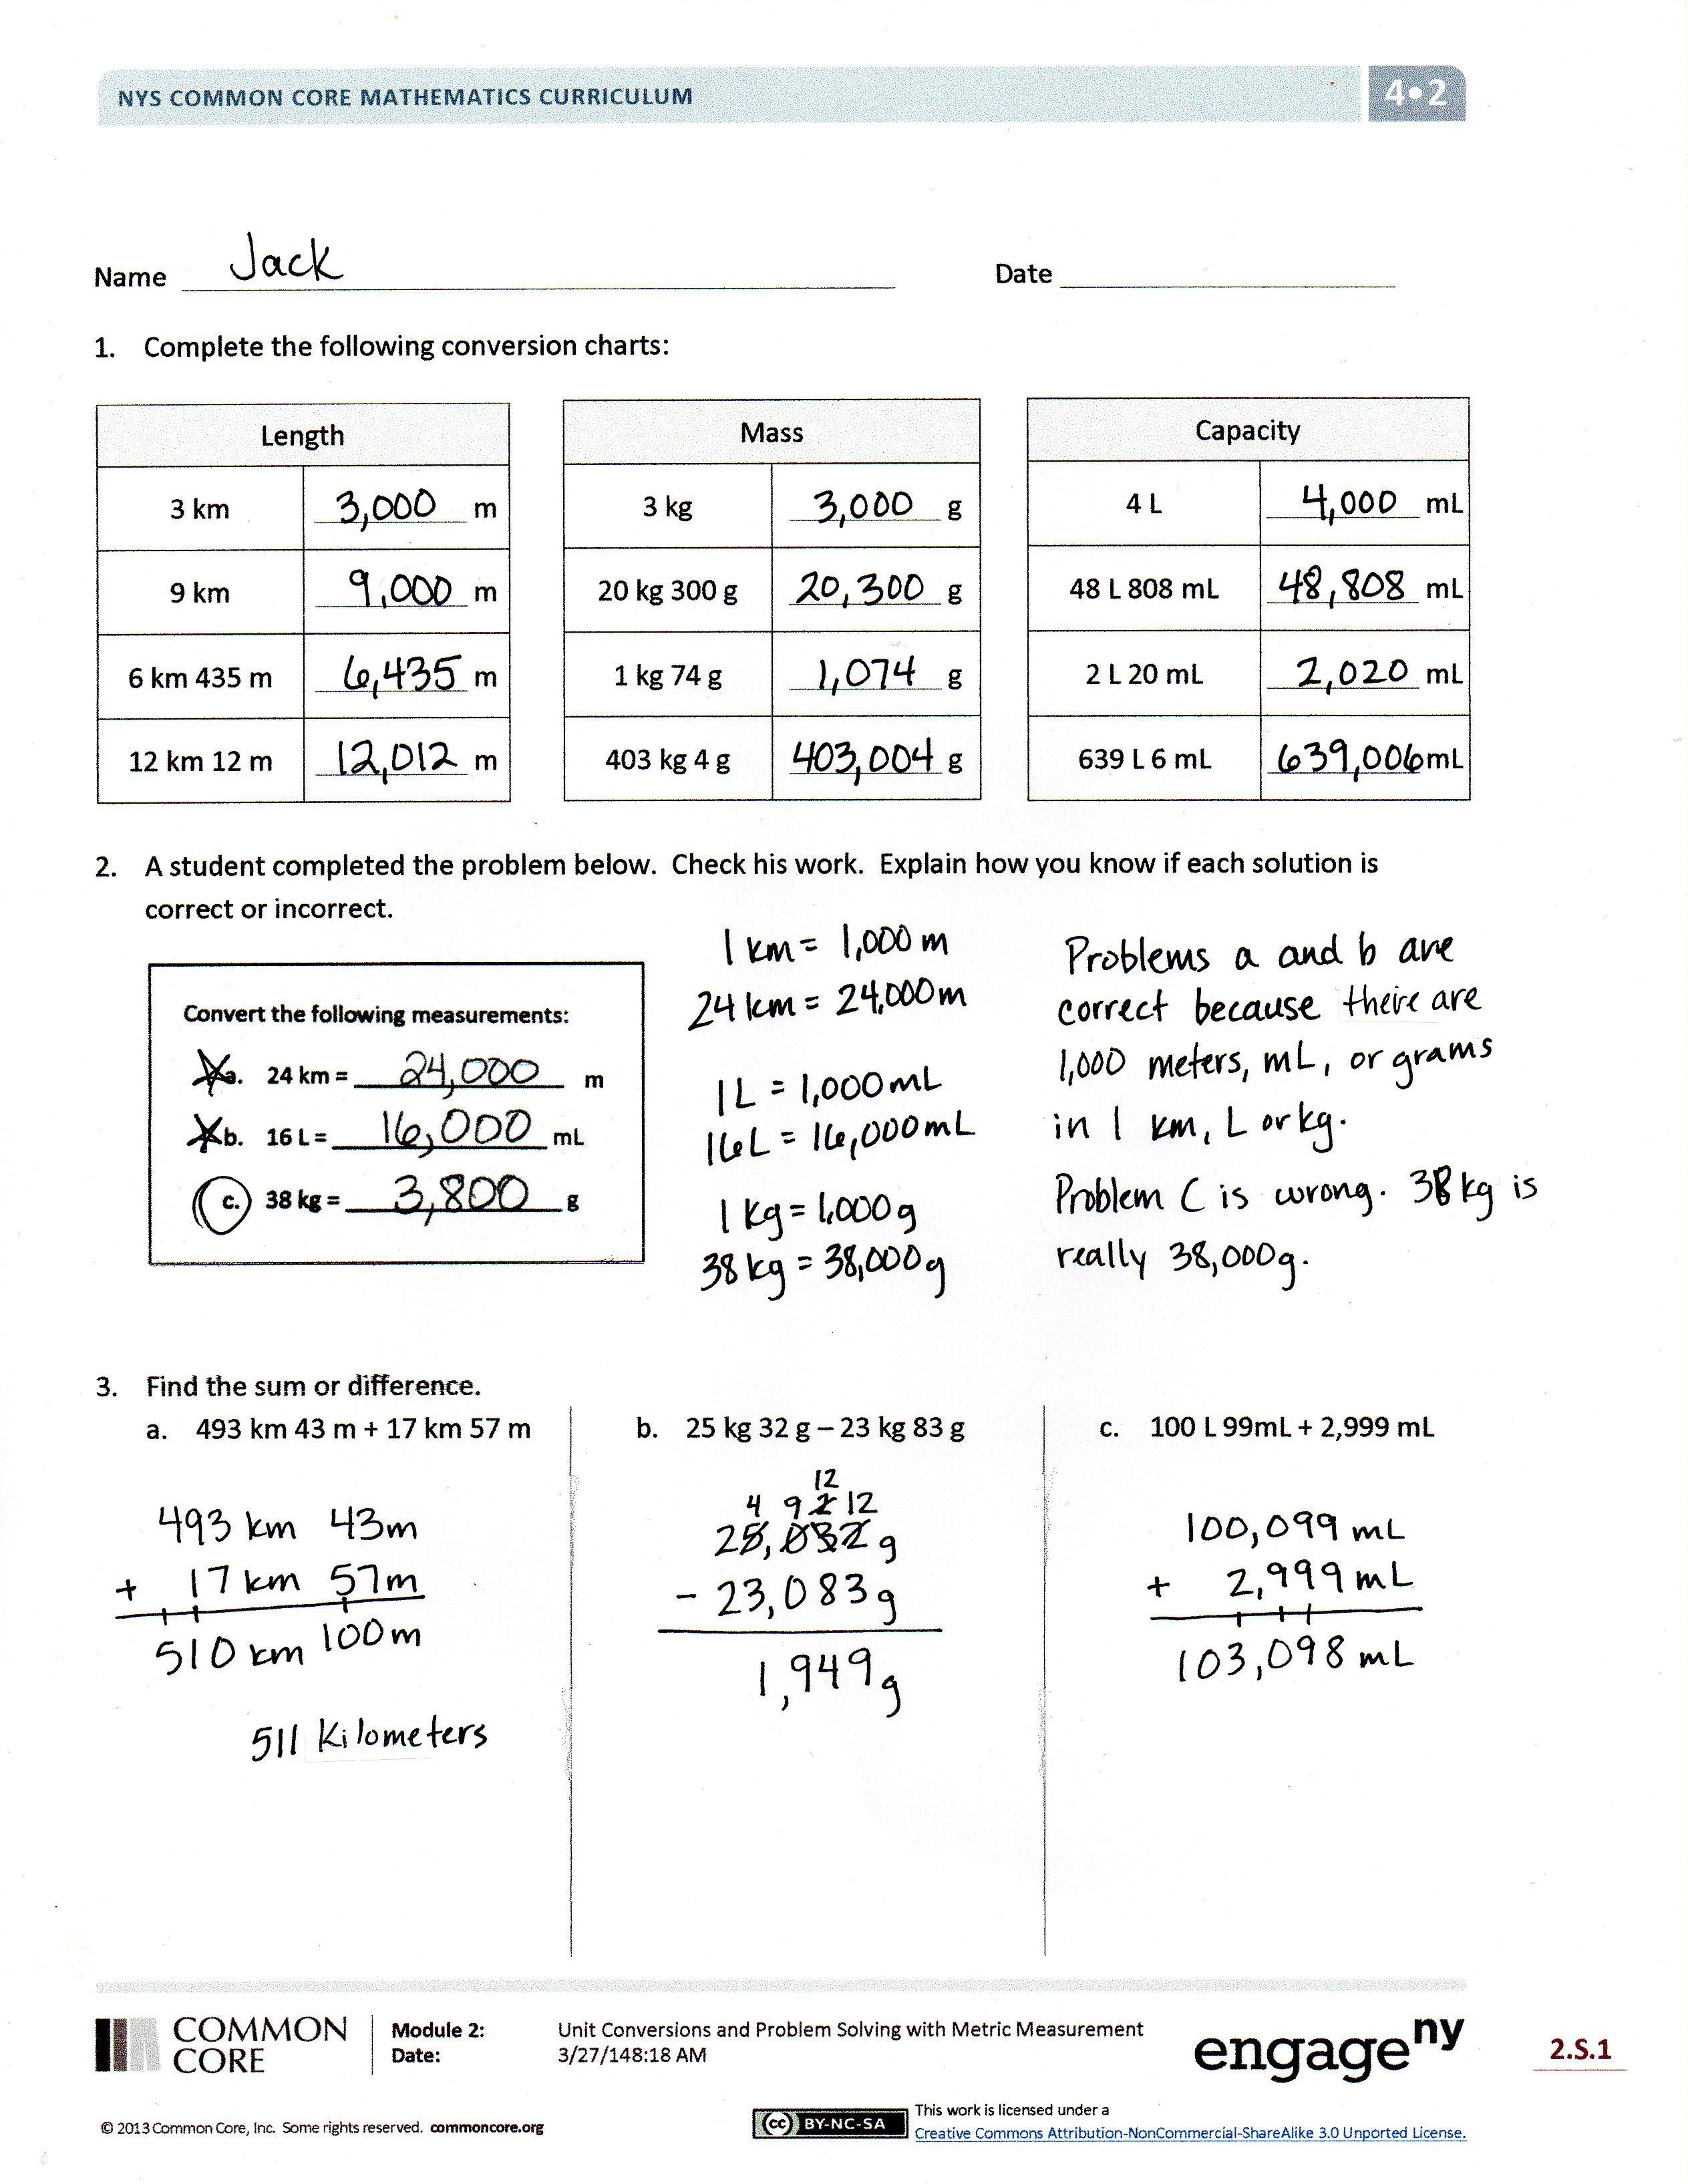 NYS COMMON CORE MATHEMATICS CURRICULUM
4•2
Name Jack
Date
1. Complete the following conversion charts:
Length
3 km 3,000 m
9 km 9,000 m
6 km 435 m 6,435 m
12 km 12 m 12,012 m
Mass
3 kg 3,000 g
20 kg 300 g 20,300 g
1 kg 74 g 1,074 g
403 kg 4 g 403,004 g
Capacity
4 L 4,000 mL
48 L 808 mL 48,808 mL
2 L 20 mL 2,020 mL
639 L 6 mL 639,006 mL
2. A student completed the problem below. Check his work. Explain how you know if each solution is
correct or incorrect.
Convert the following measurements:
a. 24 km = 24,000 m
b. 16 L = 16,000 mL
c. 38 kg = 3,800 g
1 km = 1,000 m
24 km = 24,000 m
1 L = 1,000 mL
16 L = 16,000 mL
1 kg = 1,000 g
38 kg = 38,000 g
Problems a and b are
correct because there are
1,000 meters, mL, or grams
in 1 km, L or kg.
Problem C is wrong. 38 kg is
really 38,000g.
3. Find the sum or difference.
a. 493 km 43 m + 17 km 57 m
493 km 43m
+ 17 km 57m
510 km 100m
511 Kilometers
b. 25 kg 32 g – 23 kg 83 g
12
4 9 2 12
25,032 g
- 23,083 g
1,949 g
c. 100 L 99mL + 2,999 mL
100,099 mL
+ 2,999 mL
103,098 mL
COMMON
CORE
Module 2: Unit Conversions and Problem Solving with Metric Measurement
Date: 3/27/148:18 AM
engageny
2.S.1
© 2013 Common Core, Inc. Some rights reserved. commoncore.org
cc BY-NC-SA
This work is licensed under a
Creative Commons Attribution-NonCommercial-ShareAlike 3.0 Unported License.